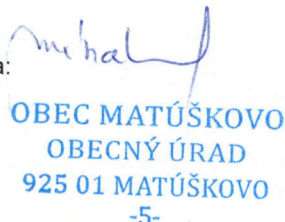 a:
OBEC MATÚŠKOVO
OBECNÝ ÚRAD
925 01 MATÚŠKOVO
-5-